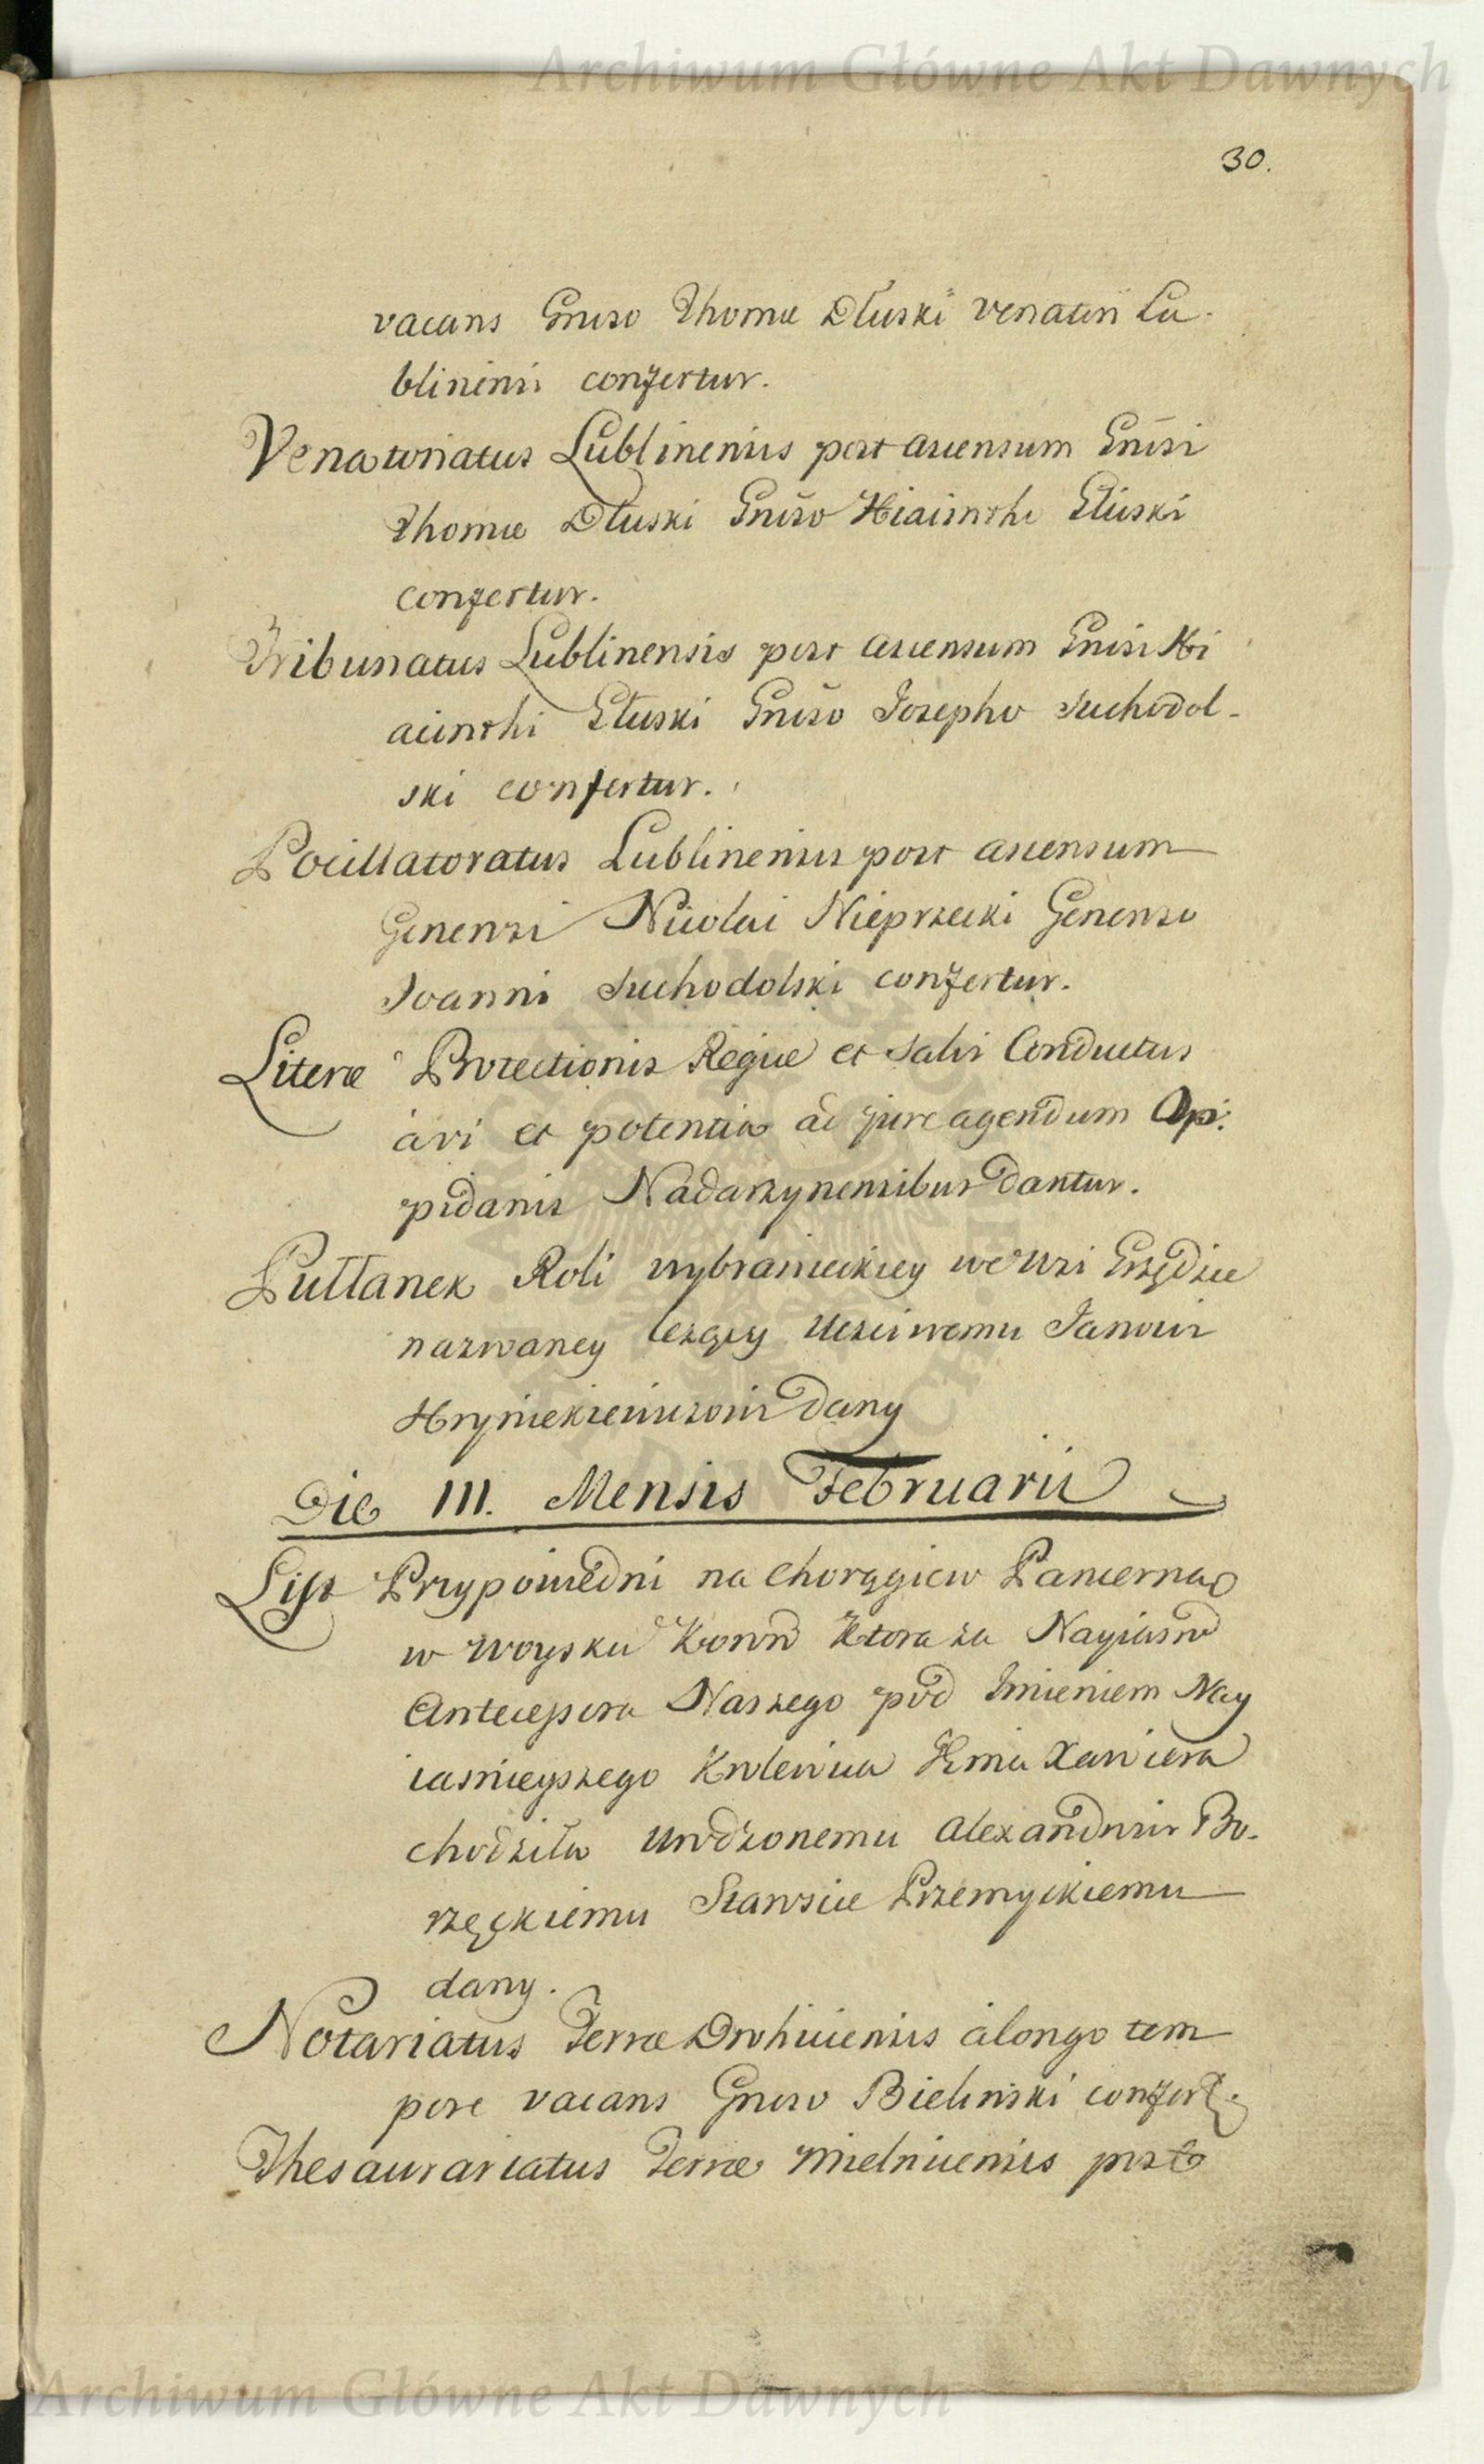 Archiwum Główne Akt Dawnych
30.
vacans Gnrso Thomæ Dłuski Venatori Lu-
blinensi confertur.
Venatoriatus Lublinensis post ascensum Gnrsi
Thomæ Dłuski Gnrso Hiacintho Głuski
confertur.
Tribunatus Lublinensis post ascensum Gnrsi Hi
acinthi Głuski Gnrso Josepho Suchodol-
ski confertur.
Pocillatoratus Lublinensis post ascensum
Generosi Nicolai Nieprzecki Generoso
Joanni Suchodolski confertur.
Literæ Protectionis Regiæ et Salvi Conductus
à vi et potentia ac jure agendum Op:
pidanis Nadarzynensibus dantur.
Pułłanek Roli wybranieckiey we Wsi Grzędzie
nazwaney lezącey Uczciwemu Janowi
Hryniekiewiczowi dany
Die III. Mensis Februarii
List Przypowiedni na Chorągiew Pancerną
w Woysku Koronn Ktora za Nayiasnd
Antecessora Naszego pod Imieniem Nay
iasnieyszego Krolewica Jmci Xawiera
chodziła Urodzonemu Alexandrowi Bo-
rzęckiemu Staroscie Przemyskiemu
dany.
Notariatus Terræ Drohicensis à longo tem
pore vacans Gnroso Bielinski confert.
Thesaurariatus Terræ Mielnicensis post
Archiwum Główne Akt Dawnych